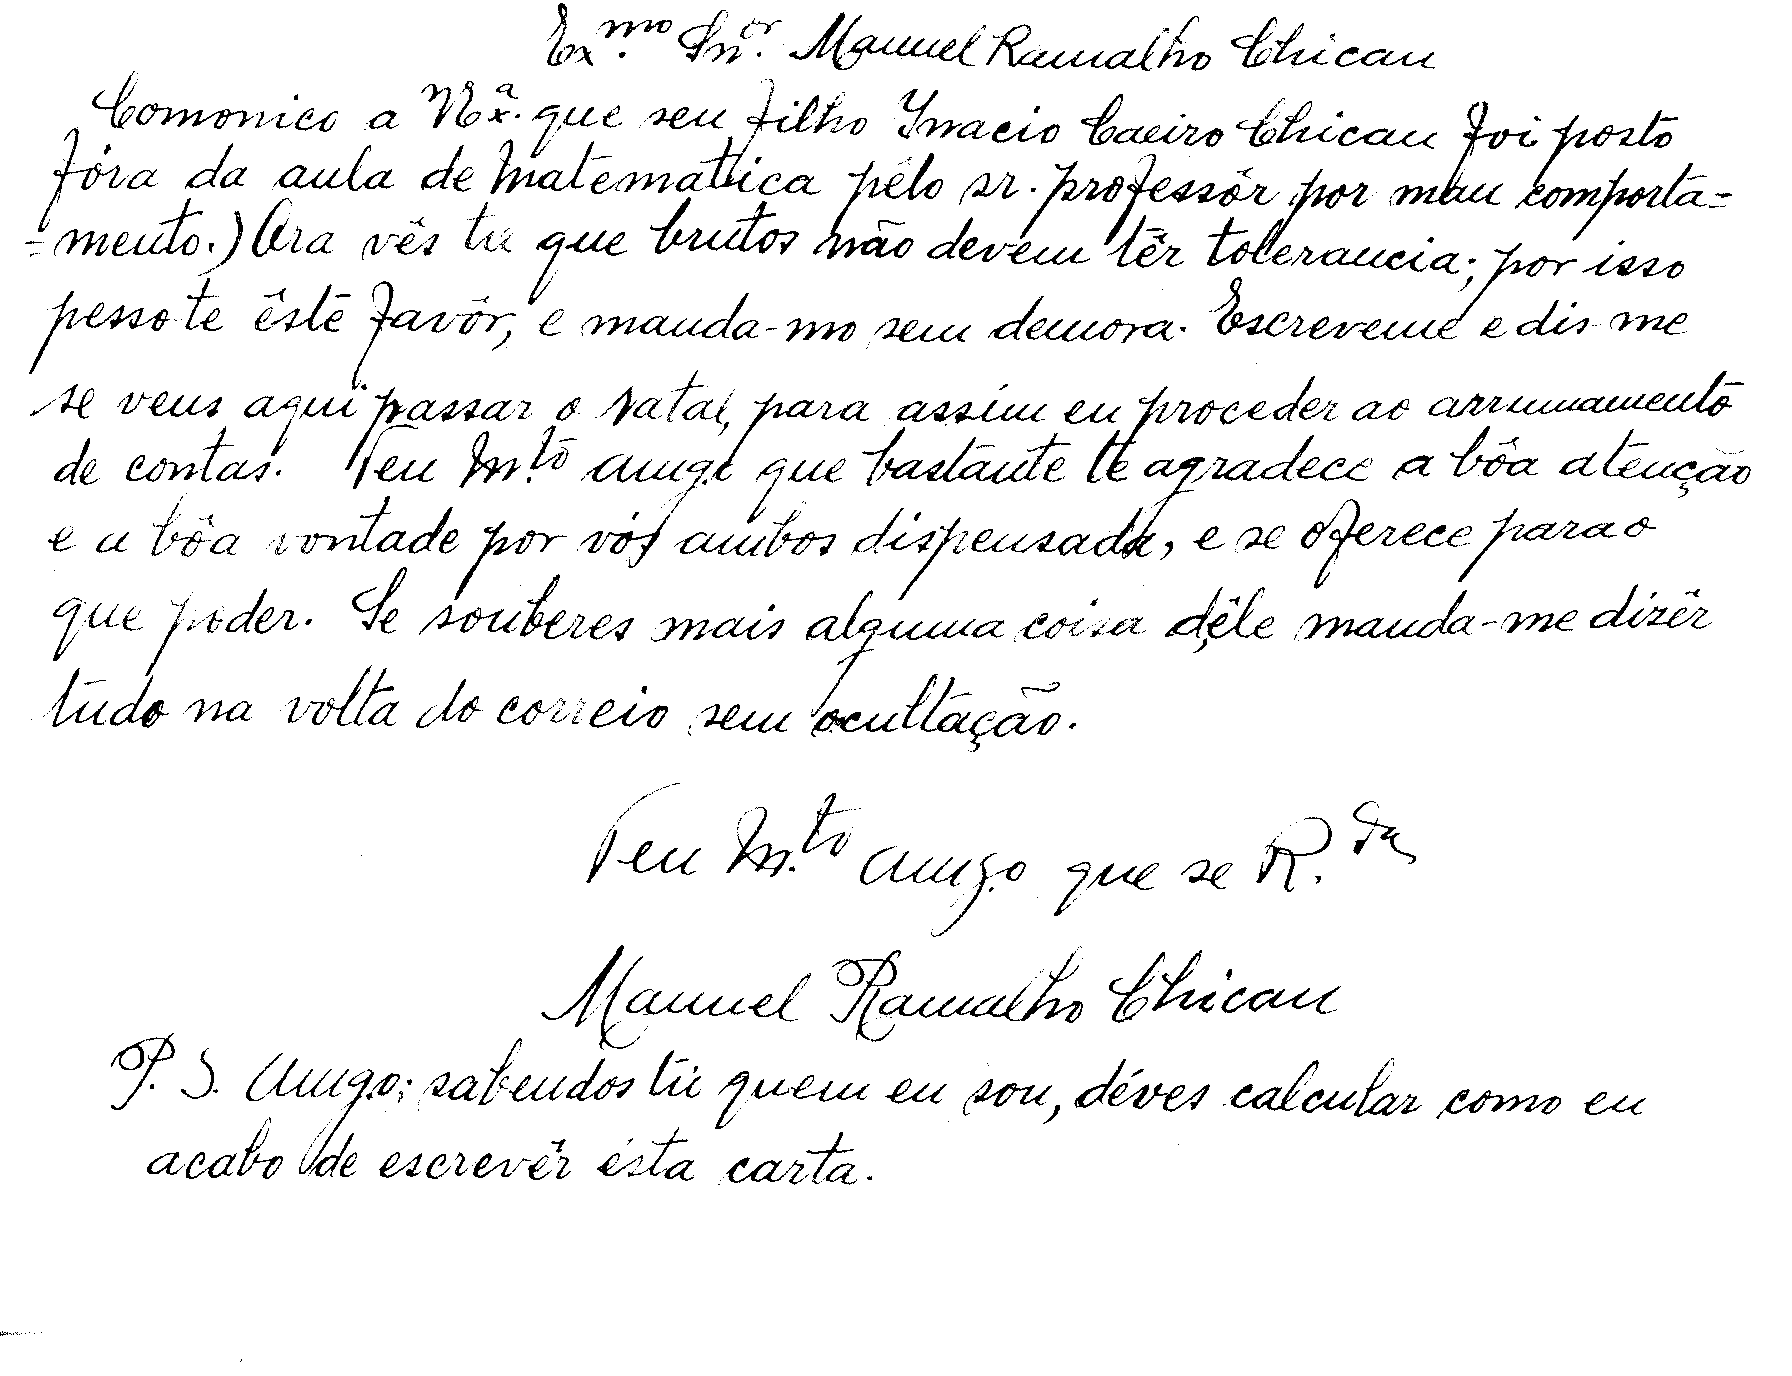 Ex.mo Snr. Manuel Ramalho Chicau
Comonico a V. Exª. que seu filho Inacio Caeiro Chicau foi posto
fóra da aula de Matematica pêlo sr. professôr por mau comporta=
=mento.) Ora vês tu que brutos não devem têr tolerancia; por isso
pesso te êste favôr, e manda-mo sem demora. Escreveme e dis-me
se vens aqui passar o Natal, para assim eu proceder ao arrumamento
de contas. Teu M.to amigo que bastante te agradece a bôa atenção
e a bôa vontade por vós ambos dispensada, e se oferece para o
que poder. Se souberes mais alguma coisa dêle manda-me dizêr
tudo na volta do correio sem ocultação.
Teu M.to amigo que se R.da
Manuel Ramalho Chicau
P. S. Amigo; sabendos tu quem eu sou, déves calcular como eu
acabo de escrevêr ésta carta.